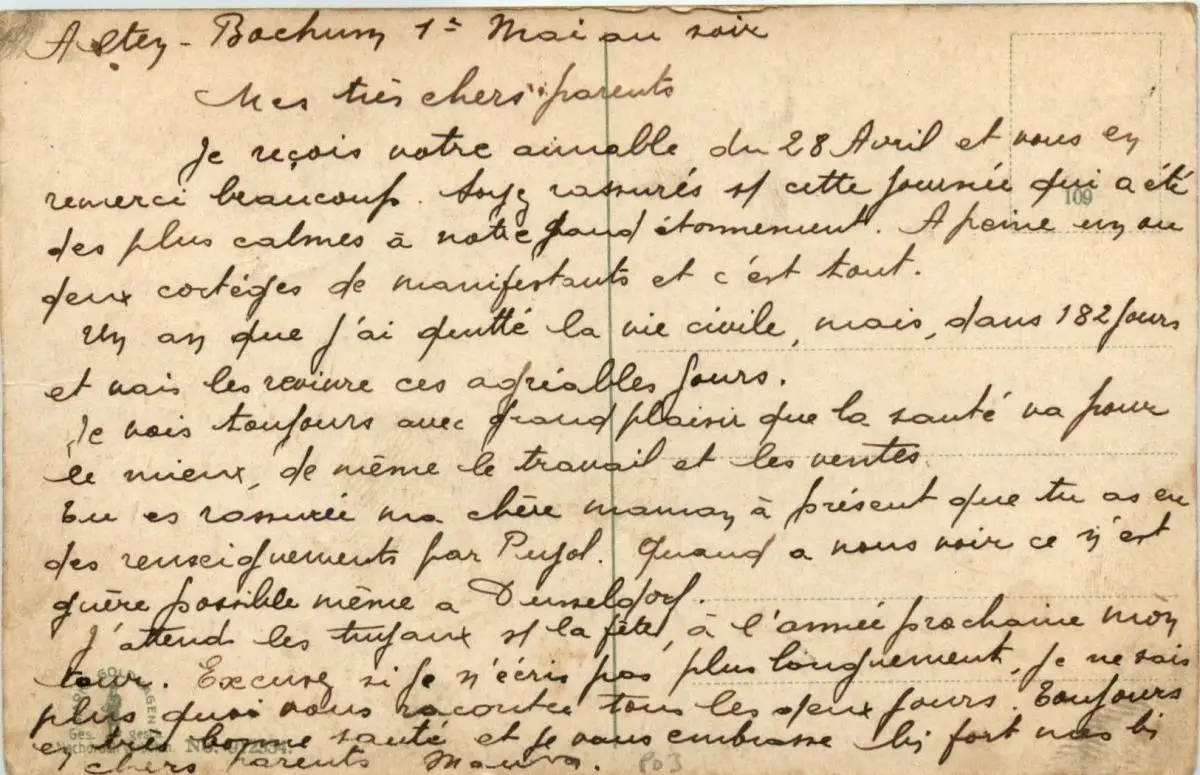 Bochum 1er Mai au soir
Mes très chers parents
Je reçois votre aimable du 28 Avril et vous en
remerci beaucoup. Soyez rassurés s/ cette journée qui a été
109
des plus calmes à notre grand étonnement. A peine un ou
deux cortéges de manifestants et c'est tout.
Un an que j'ai quitté la vie civile, mais, dans 182 jours
et vais les revivre ces agréables jours.
Je vois toujours avec grand plaisir que la santé va pour
le mieux, de même le travail et les ventes.
Tu es rassurée ma chère maman à présent que tu as eu
des renseignements par Pujol. Quand a nous voir ce n'est
guère possible même a Dusseldorf.
J'attend les tuyaux s/ la fête, à l'année prochaine mon
tour. Excusez si je n'écris pas plus longuement, je ne sais
plus quoi vous raconter tous les deux jours. Toujours
en très bonne santé et je vous embrasse bi fort mes bi
chers parents
Ges. gesch.
No.
P03